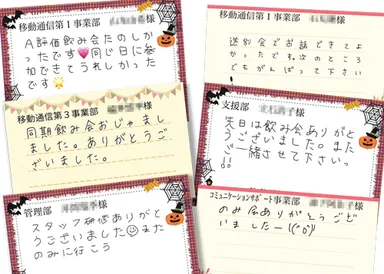 移動通信第1事業部 様
A評価飲み会たのしか
ったです💗同じ日に参
加できてうれしかった
です🌟
移動通信第1事業部 様
送別会でお話できてよ
かったです。次のところ
でもがんばって下さい
移動通信第3事業部 様
同期飲み会おじゃまし
ました。ありがとうご
ざいました。
支援部 様
先日は飲み会ありがと
うございました。また
ご一緒させて下さいっ
!!
管理部 様
スタッフ研修ありがと
うございました☺また
のみに行こう
コミュニケーションサポート事業部 様
のみ会ありがとうござ
いましたー!(^o^)!